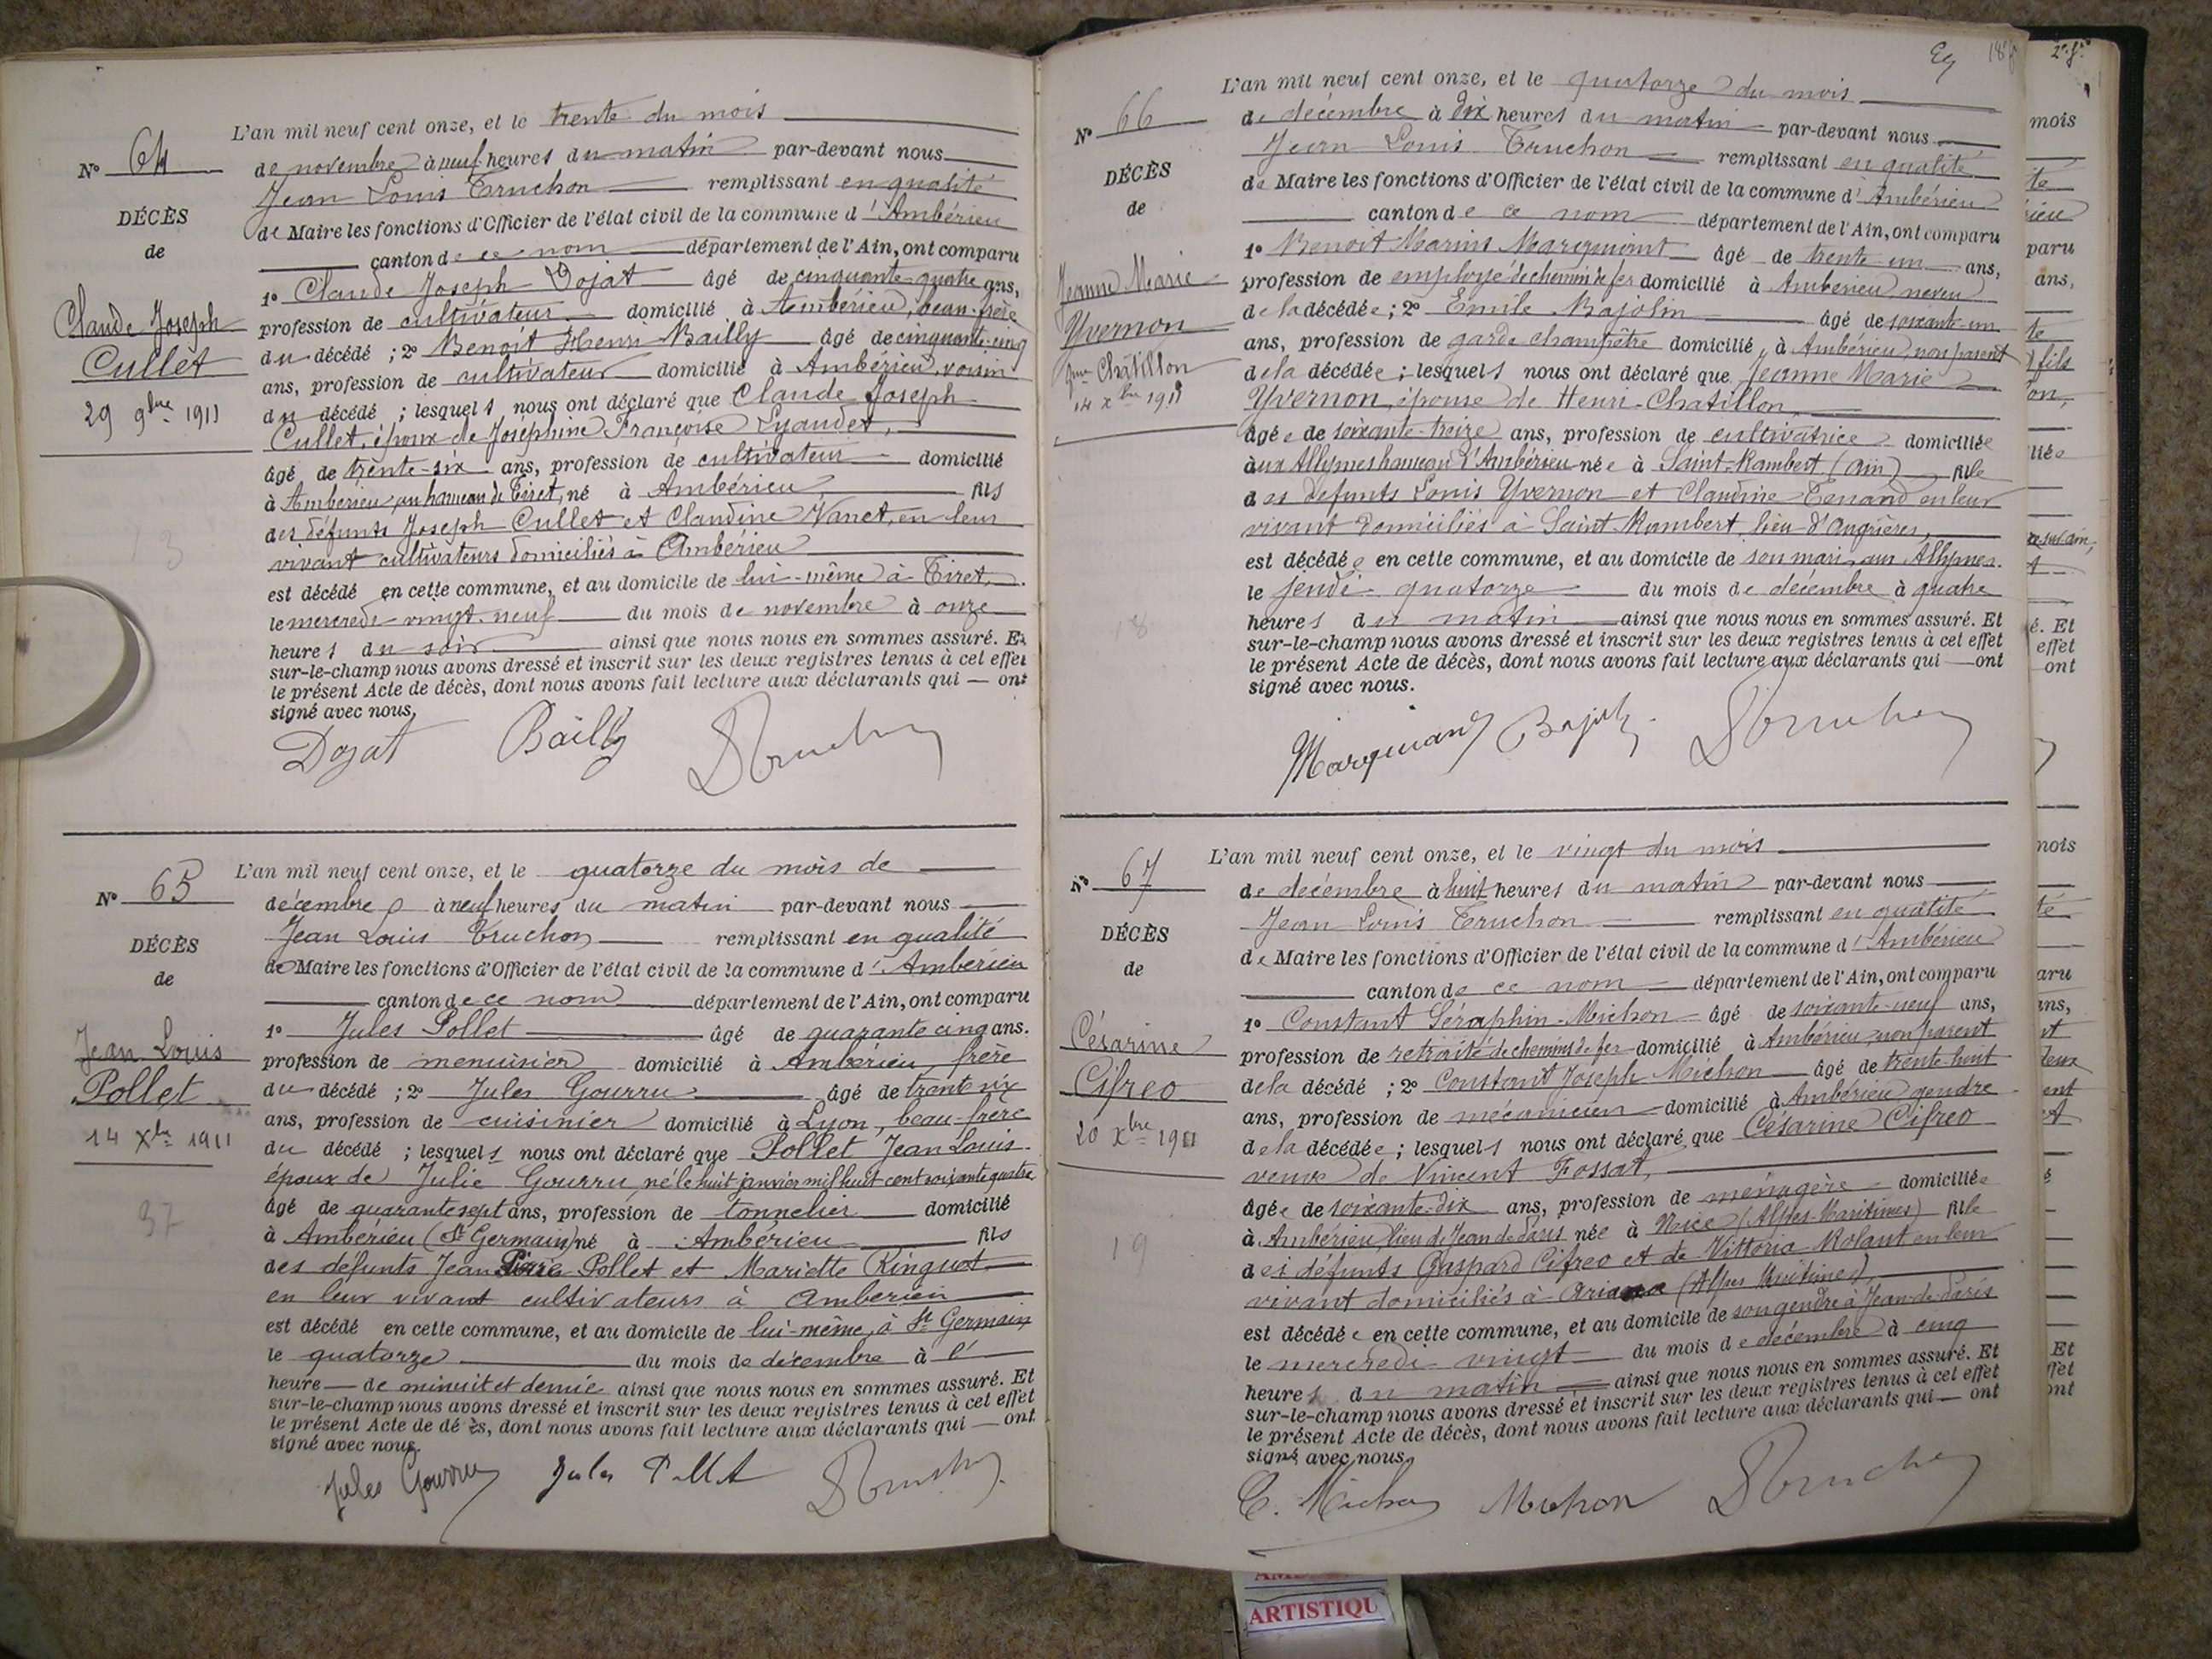 N° 64
DÉCÈS
de
Claude Joseph
Cullet
29 9bre 1911
L'an mil neuf cent onze, et le trente du mois
de novembre à neuf heures du matin par-devant nous
Jean Louis Truchon remplissant en qualité
de Maire les fonctions d'Officier de l'état civil de la commune d'Ambérieu
canton de ce nom département de l'Ain, ont comparu
1° Claude Joseph Dojat âgé de cinquante-quatre ans,
profession de cultivateur domicilié à Ambérieu, beau-frère
du décédé ; 2° Benoit Henri Bailly âgé de cinquante-cinq
ans, profession de cultivateur domicilié à Ambérieu, voisin
du décédé ; lesquels nous ont déclaré que Claude Joseph
Cullet, époux de Joséphine Françoise Lyaudet,
âgé de trente-six ans, profession de cultivateur domicilié
à Ambérieu, au hameau de Tiret, né à Ambérieu fils
des défunts Joseph Cullet et Claudine Vanet, en leur
vivant cultivateurs domiciliés à Ambérieu
est décédé en cette commune, et au domicile de lui-même à Tiret,
le mercredi vingt-neuf du mois de novembre à onze
heures du soir ainsi que nous nous en sommes assuré. Et
sur-le-champ nous avons dressé et inscrit sur les deux registres tenus à cet effet
le présent Acte de décès, dont nous avons fait lecture aux déclarants qui — ont
signé avec nous.
Dojat Bailly Truchon
N° 65
DÉCÈS
de
Jean Louis
Pollet
14 Xbre 1911
37
L'an mil neuf cent onze, et le quatorze du mois de
décembre à neuf heures du matin par-devant nous
Jean Louis Truchon remplissant en qualité
de Maire les fonctions d'Officier de l'état civil de la commune d'Ambérieu
canton de ce nom département de l'Ain, ont comparu
1° Jules Pollet âgé de quarante cinq ans.
profession de menuisier domicilié à Ambérieu, frère
du décédé ; 2° Jules Gourru âgé de trente six
ans, profession de cuisinier domicilié à Lyon, beau-frère
du décédé ; lesquels nous ont déclaré que Pollet Jean Louis
époux de Julie Gourru, né le huit janvier mil huit cent soixante quatre
âgé de quarante sept ans, profession de tonnelier domicilié
à Ambérieu (St Germain) né à Ambérieu fils
des défunts Jean Pierre Pollet et Mariette Ringuet
en leur vivant cultivateurs à Ambérieu
est décédé en cette commune, et au domicile de lui-même, à St Germain
le quatorze du mois de décembre à l'
heure — de minuit et demie ainsi que nous nous en sommes assuré. Et
sur-le-champ nous avons dressé et inscrit sur les deux registres tenus à cet effet
le présent Acte de dé ès, dont nous avons fait lecture aux déclarants qui — ont
signé avec nous.
Jules Gourru Jules Pollet Truchon
N° 66
DÉCÈS
de
Jeanne Marie
Yvernon
fme Châtillon
14 Xbre 1911
18
L'an mil neuf cent onze, et le quatorze du mois
de décembre à dix heures du matin par-devant nous
Jean Louis Truchon remplissant en qualité
de Maire les fonctions d'Officier de l'état civil de la commune d'Ambérieu
canton de ce nom département de l'Ain, ont comparu
1° Benoit Marius Marquiant âgé de trente-un ans,
profession de employé de chemin de fer domicilié à Ambérieu neveu
de la décédée ; 2° Emile Bajolin âgé de soixante-un
ans, profession de garde champêtre domicilié à Ambérieu, non parent
de la décédée ; lesquels nous ont déclaré que Jeanne Marie
Yvernon, épouse de Henri-Chatillon,
âgée de soixante-treize ans, profession de cultivatrice domiciliée
aux Allymes hameau d'Ambérieu née à Saint-Rambert (Ain) fille
des défunts Louis Yvernon et Claudine Tenand en leur
vivant domiciliés à Saint-Rambert, lieu d'Angrières,
est décédée en cette commune, et au domicile de son mari, aux Allymes.
le jeudi quatorze du mois de décembre à quatre
heures du matin ainsi que nous nous en sommes assuré. Et
sur-le-champ nous avons dressé et inscrit sur les deux registres tenus à cet effet
le présent Acte de décès, dont nous avons fait lecture aux déclarants qui — ont
signé avec nous.
Marquiand Bajolin Truchon
N° 67
DÉCÈS
de
Césarine
Cifreo
20 Xbre 1911
19
L'an mil neuf cent onze, et le vingt du mois
de décembre à huit heures du matin par-devant nous
Jean Louis Truchon remplissant en qualité
de Maire les fonctions d'Officier de l'état civil de la commune d'Ambérieu
canton de ce nom département de l'Ain, ont comparu
1° Constant Séraphin Michon âgé de soixante-neuf ans,
profession de retraité de chemins de fer domicilié à Ambérieu, non parent
de la décédé ; 2° Constant Joseph Michon âgé de trente huit
ans, profession de mécanicien domicilié à Ambérieu gendre
de la décédée ; lesquels nous ont déclaré que Césarine Cifreo
veuve de Vincent Fossat,
âgée de soixante-dix ans, profession de ménagère domiciliée
à Ambérieu, lieu de Jean de Paris née à Nice (Alpes-Maritimes) fille
des défunts Gaspard Cifreo et de Vittoria Rolant en leur
vivant domiciliés à (Alpes Maritimes)
est décédée en cette commune, et au domicile de son gendre à Jean-de-Paris
le mercredi vingt du mois de décembre à cinq
heures du matin ainsi que nous nous en sommes assuré. Et
sur-le-champ nous avons dressé et inscrit sur les deux registres tenus à cet effet
le présent Acte de décès, dont nous avons fait lecture aux déclarants qui — ont
signé avec nous.
C. Michon Michon Truchon
ARTISTIQU